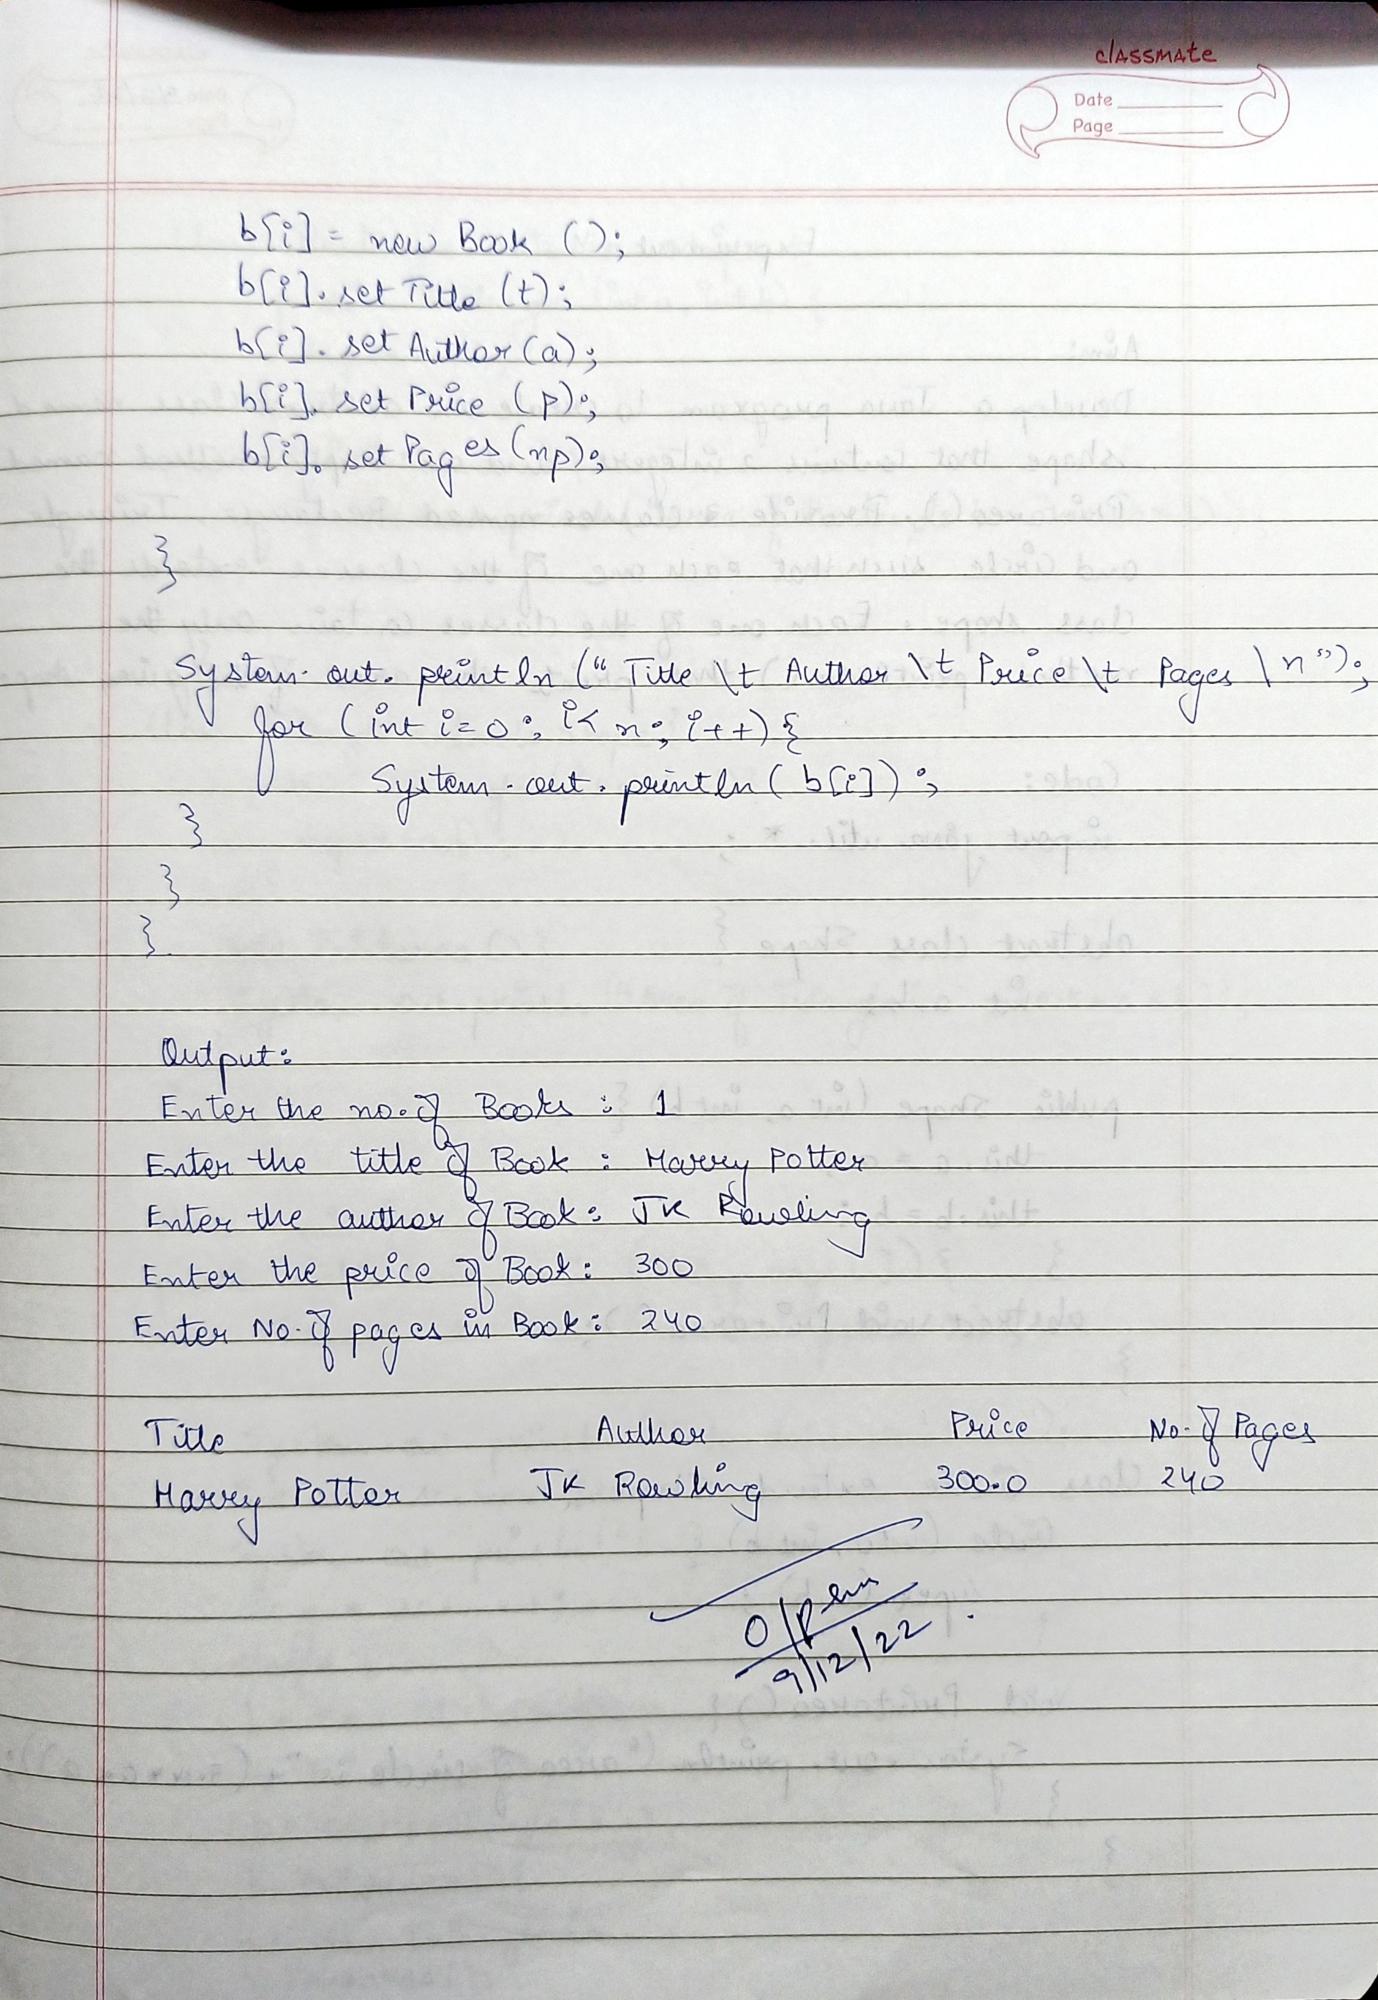 classmate
Date
Page
b[i] = new Book ();
b[i]. set Title (t);
b[i]. set Author (a);
b[i]. set Price (p);
b[i]. set Pages (np);
}
System. out. println (" Title \t Author \t Price \t Pages \n");
for (int i=0; i< n; i++) {
System. out. println ( b[i]) ;
}
}
}
Output:
Enter the no. of Books : 1
Enter the title of Book : Harry Potter
Enter the author of Book: JK Rowling
Enter the price of Book: 300
Enter No. of pages in Book: 240
Title Author Price No. of Pages
Harry Potter JK Rowling 300.0 240
9/12/22